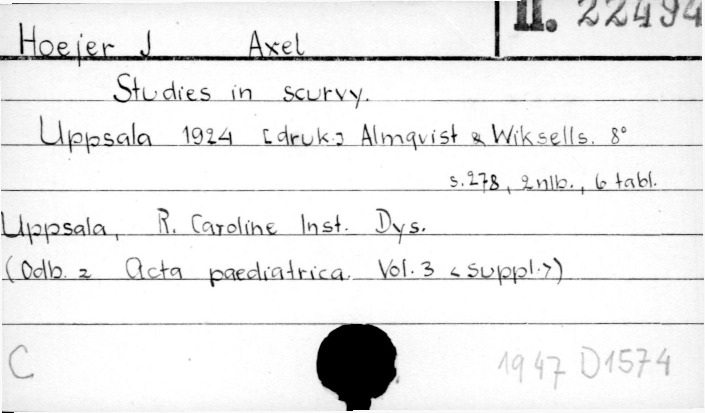 II. 22494
Hoejer J Axel
Studies in scurvy.
Uppsala 1924 [druk.] Almqvist & Wiksells. 8°
s. 278, 2 nlb., 6 tabl.
Uppsala, R. Caroline Inst. Dys.
(Odb. z Acta paediatrica. Vol. 3 <Suppl.>)
C 1947 D1574